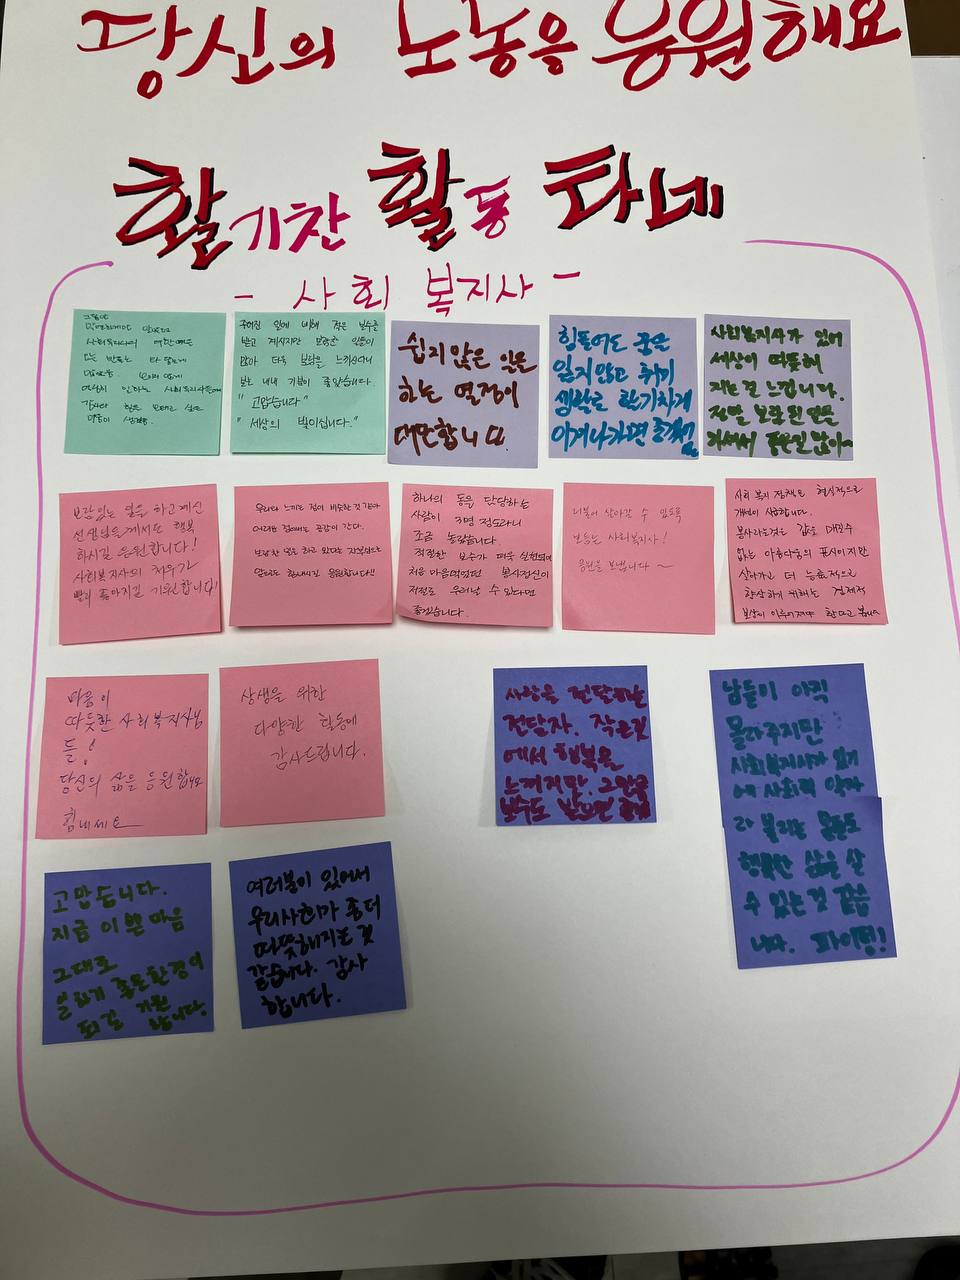 당신의 노동을 응원해요
활기찬 활동 타네
- 사회 복지사 -
사회복지사의
하는 사회복지사들에
주어진 일에 비해 작은 보수를
받고 계시지만 보람찬 일들이
많아 더욱 보람을 느끼신다니
보는 내내 기분이 좋았습니다.
"고맙습니다"
"세상의 빛이십니다."
쉽지 않은 일은
하는 열정이
대단합니다.
힘들어도 꿈은
잃지않고 취미
생활로 활기차게
이겨나가면 좋겠
사회복지사가 있어
세상이 따뜻해
지는걸 느낍니다.
정말 보람된 일을
하셔서
보람있는 일을 하고 계신
선생님들께서도 행복
하시길 응원합니다!
사회복지사의 처우가
빨리 좋아지길 기원합니다!
우리와 느끼는 점이 비슷한 것 같아
어려운 점에도 공감이 간다.
보람찬 일을 하고 있다는 자부심으로
앞으로도 힘내시길 응원합니다!!
하나의 동을 담당하는
사람이 3명 정도라니
조금 놀랐습니다.
적절한 보수가 더욱 실현되어
처음 마음먹었던 봉사정신이
저절로 우러날 수 있다면
좋겠습니다.
더불어 살아갈 수 있도록
보듬는 사회복지사!
응원을 보냅니다~
사회 복지 정책도 현실적으로
개선이 시급합니다.
봉사라는것은 값을 매길수
없는 아름다움의 표시이지만
살아가고 더 능률적으로
향상하기 위해는 경제적
보상이 이루어져야 한다고 봅니다
마음이
따뜻한 사회복지사님
들!
당신의 삶을 응원합니다
힘내세요
상생을 위한
다양한 활동에
감사드립니다.
사랑을 전달하는
전달자. 작은것
에서 행복을
느끼지만. 그만큼
보수도 받으면 좋겠
남들이 아직
몰라주지만
사회복지사가 있기
에 사회적 약자
라 불리는 분들도
행복한 삶을 살
수 있는 것 같습
니다. 파이팅!
고맙습니다.
지금 이 쁜 마음
그대로
일하기 좋은환경이
되길 기원
합니다.
여러분이 있어서
우리사회가 좀더
따뜻해지는 것
같습니다. 감사
합니다.